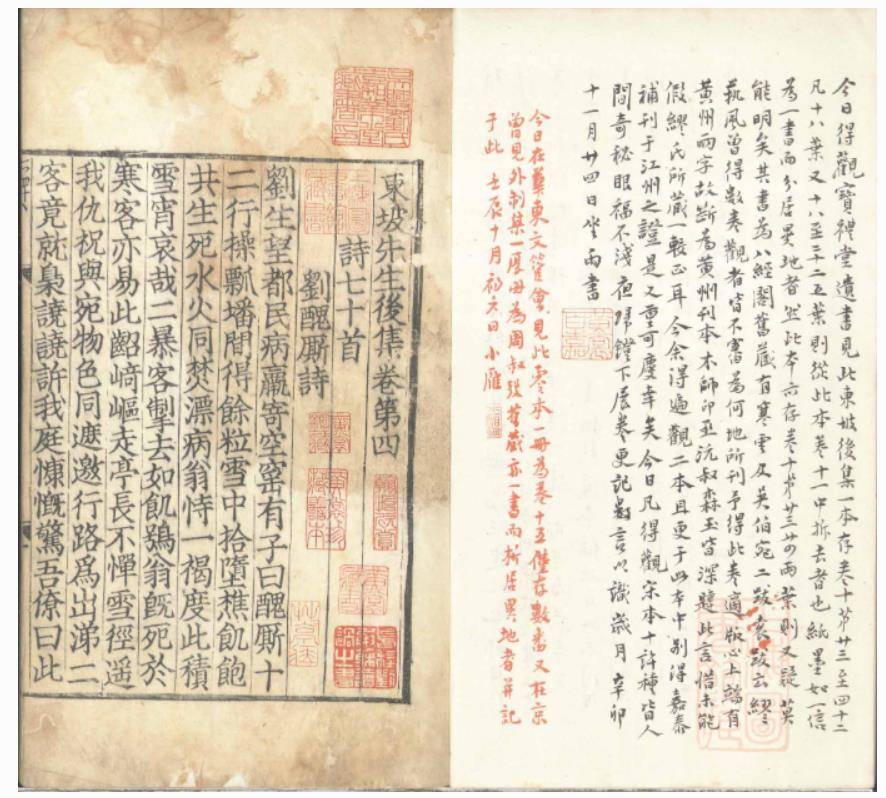 今日得觀寶禮堂遺書見此東坡後集一本存卷十第廿三至四十二
凡十八葉又十八至三十二五葉則從此本卷十一中拆去者也紙墨如一信
為一書而分居異地者然此本亦存卷十第廿三廿四兩葉則又疑莫
能明矣其書為八經閣舊藏有寒雲及吳伯宛二跋袁跋云繆
藝風曾得數卷觀者皆不審為何地所刊予得此卷適版心上端有
黃州兩字故斷為黃州刊本木師印丞沅叔森玉皆深韙此言惜未能
假繆氏所藏一較正耳今余得遍觀二本且更于此本中别得嘉泰
補刊于江州之證是又重可慶幸矣今日凡得觀宋本十許種皆人
間奇秘眼福不淺夜歸鐙下展卷更記數言以識歲月辛卯
十一月廿四日坐雨書
今日在冀東文管會見此零本一冊為卷十五僅存數番又在京
曾見外制集一厚冊為周叔弢舊藏亦一書而拆居異地者并記
于此壬辰十月初六日小雁
東坡先生後集卷第四
詩七十首
劉醜廝詩
劉生望都民病羸寄空窰有子曰醜廝十
二行操瓢墦間得餘粒雪中拾墮樵飢飽
共生死水火同焚漂病翁恃一褐度此積
雪宵哀哉二暴客掣去如飢鴞翁旣死於
寒客亦易此齠崎嶇走亭長不憚雪徑遥
我仇祝與宛物色同遮邀行路爲出涕二
客竟就梟譊譊訴我庭慷慨驚吾僚曰此